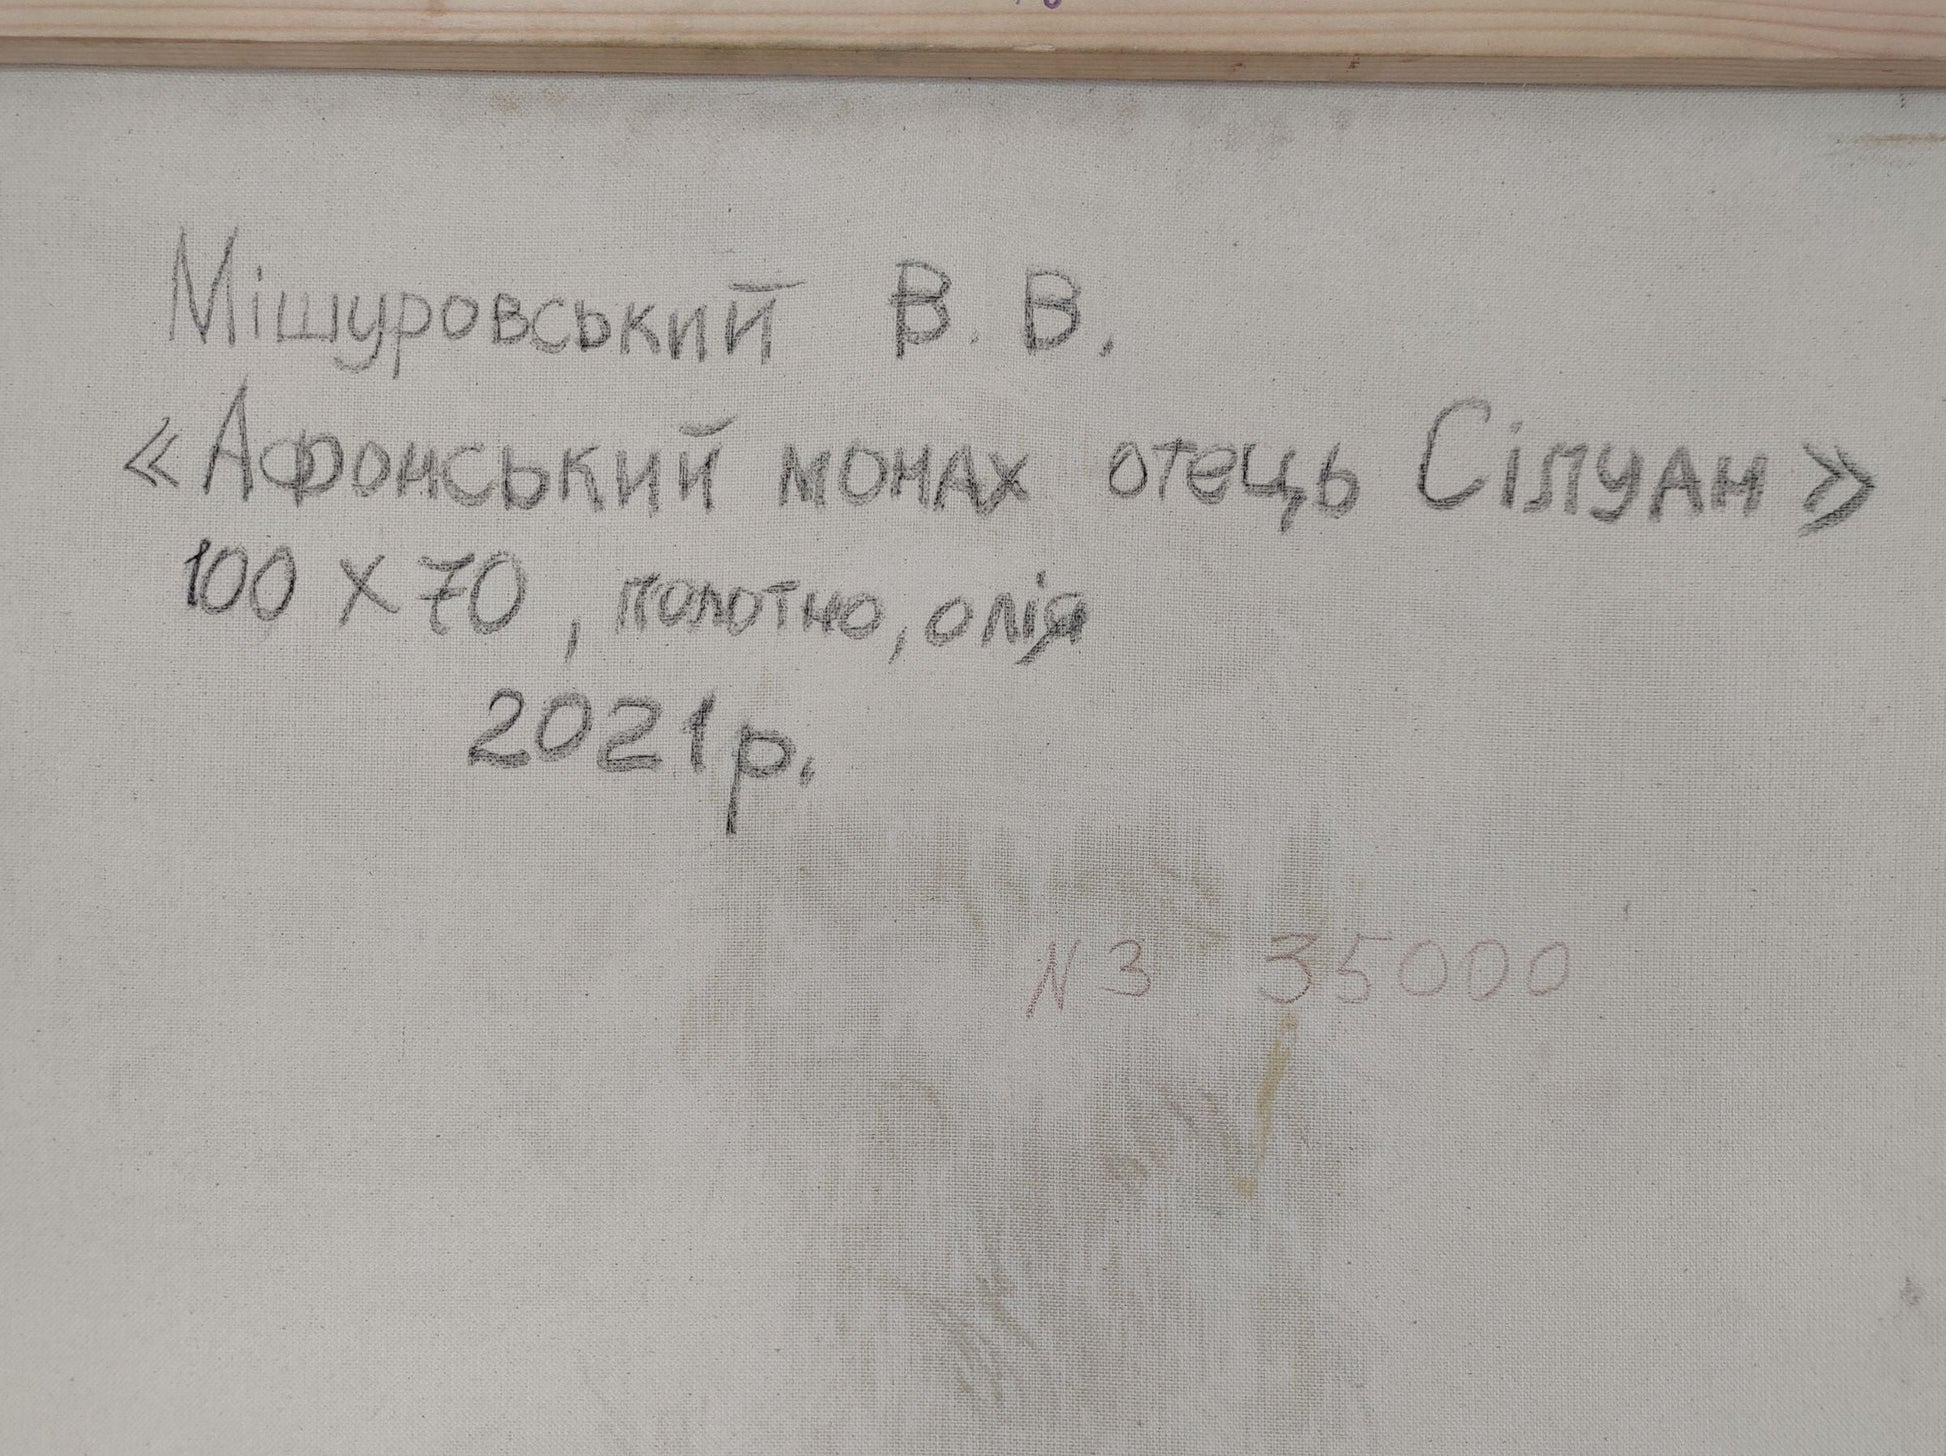 Мішуровський В. В.
«Афонський монах отець Сілуан»
100 х 70, полотно, олія
2021р.
N 3 35000